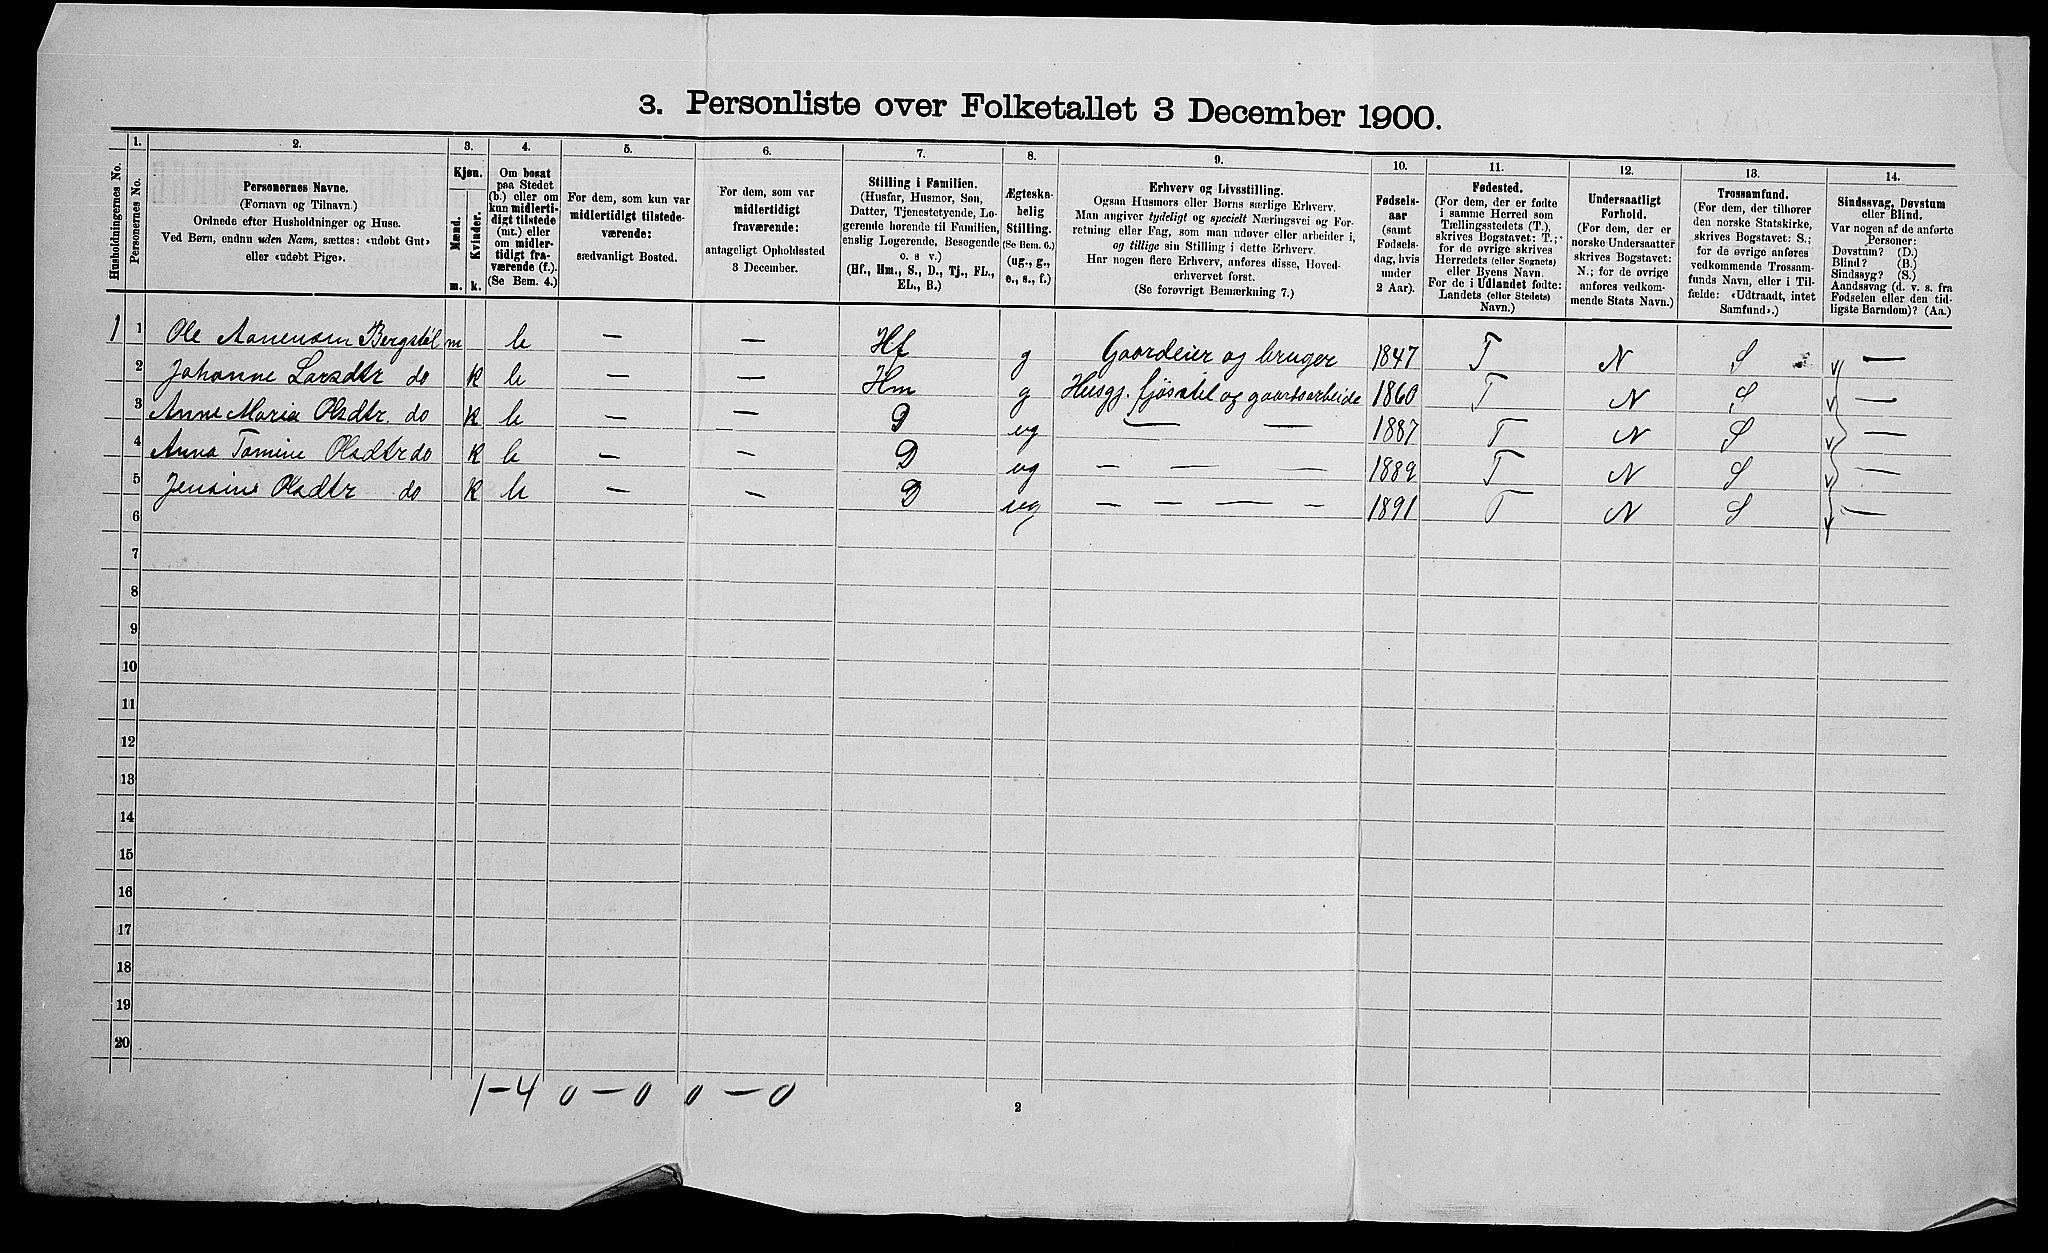 3. Personliste over Folketallet 3 December 1900.
1. 2. 3. 4. 5. 6. 7. 8. 9. 10. 11. 12. 13. 14.
Husholdningernes No.
Personernes No.
Personernes Navne.
(Fornavn og Tilnavn.)
Ordnede efter Husholdninger og Huse.
Ved Børn, endnu uden Navn, sættes: «udøbt Gut»
eller «udøbt Pige».
Kjøn.
Mænd.
Kvinder.
m. k.
Om bosat
paa Stedet
(b.) eller om
kun midlerti-
digt tilstede
(mt.) eller
om midler-
tidigt fra-
værende (f.).
(Se Bem. 4.)
For dem, som kun var
midlertidigt tilstede-
værende:
sædvanligt Bosted.
For dem, som var
midlertidigt
fraværende:
antageligt Opholdssted
3 December.
Stilling i Familien.
(Husfar, Husmor, Søn,
Datter, Tjenestetyende, Lo-
gerende hørende til Familien,
enslig Logerende, Besøgende
o. s v.)
(Hf., Hm., S., D., Tj., FL.,
EL., B.)
Ægteska-
belig
Stilling.
(Se Bem. 6.)
(ug., g.,
e., s., f.)
Erhverv og Livsstilling.
Ogsaa Husmors eller Børns særlige Erhverv.
Man angiver tydeligt og specielt Næringsvei og For-
retning eller Fag, som man udøver eller arbeider i,
og tillige sin Stilling i dette Erhverv.
Har nogen flere Erhverv, anføres disse, Hoved-
erhvervet først.
(Se forøvrigt Bemærkning 7.)
Fødsels-
aar
(samt
Fødsels-
dag, hvis
under
2 Aar).
Fødested.
(For dem, der er fødte
i samme Herred som
Tællingsstedets (T.),
skrives Bogstavet: T.;
for de øvrige skrives
Herredets (eller Sognets)
eller Byens Navn.
For de i Udlandet fødte:
Landets (eller Stedets)
Navn.)
Undersaatligt
Forhold.
(For dem, der er
norske Undersaatter
skrives Bogstavet:
N.; for de øvrige
anføres vedkom-
mende Stats Navn.)
Trossamfund.
(For dem, der tilhører
den norske Statskirke,
skrives Bogstavet: S.;
for de øvrige anføres
vedkommende Trossam-
funds Navn, eller i Til-
fælde: «Udtraadt, intet
Samfund».)
Sindssvag, Døvstum
eller Blind.
Var nogen af de anførte
Personer:
Døvstum? (D.)
Blind? (B.)
Sindssyg? (S.)
Aandssvag (d. v. s. fra
Fødselen eller den tid-
ligste Barndom)? (Aa.)
1 1 Ole Aanensøn Bergstøl m b — — Hf g Gaardeier og bruger 1847 T N S —
2 Johanne Larsdtr do k b — — Hm g Husgj. fjøsstel og gaardsarbeide 1860 T N S —
3 Anne Maria Olsdtr. do k b — — D ug — — 1887 T N S —
4 Anna Tomine Olsdtr do k b — — D ug — — — 1889 T N S —
5 Jensine Olsdtr do k b — — D ug — — — — 1891 T N S —
6
7
8
9
10
11
12
13
14
15
16
17
18
19
20
1–4 0–0 0–0
2